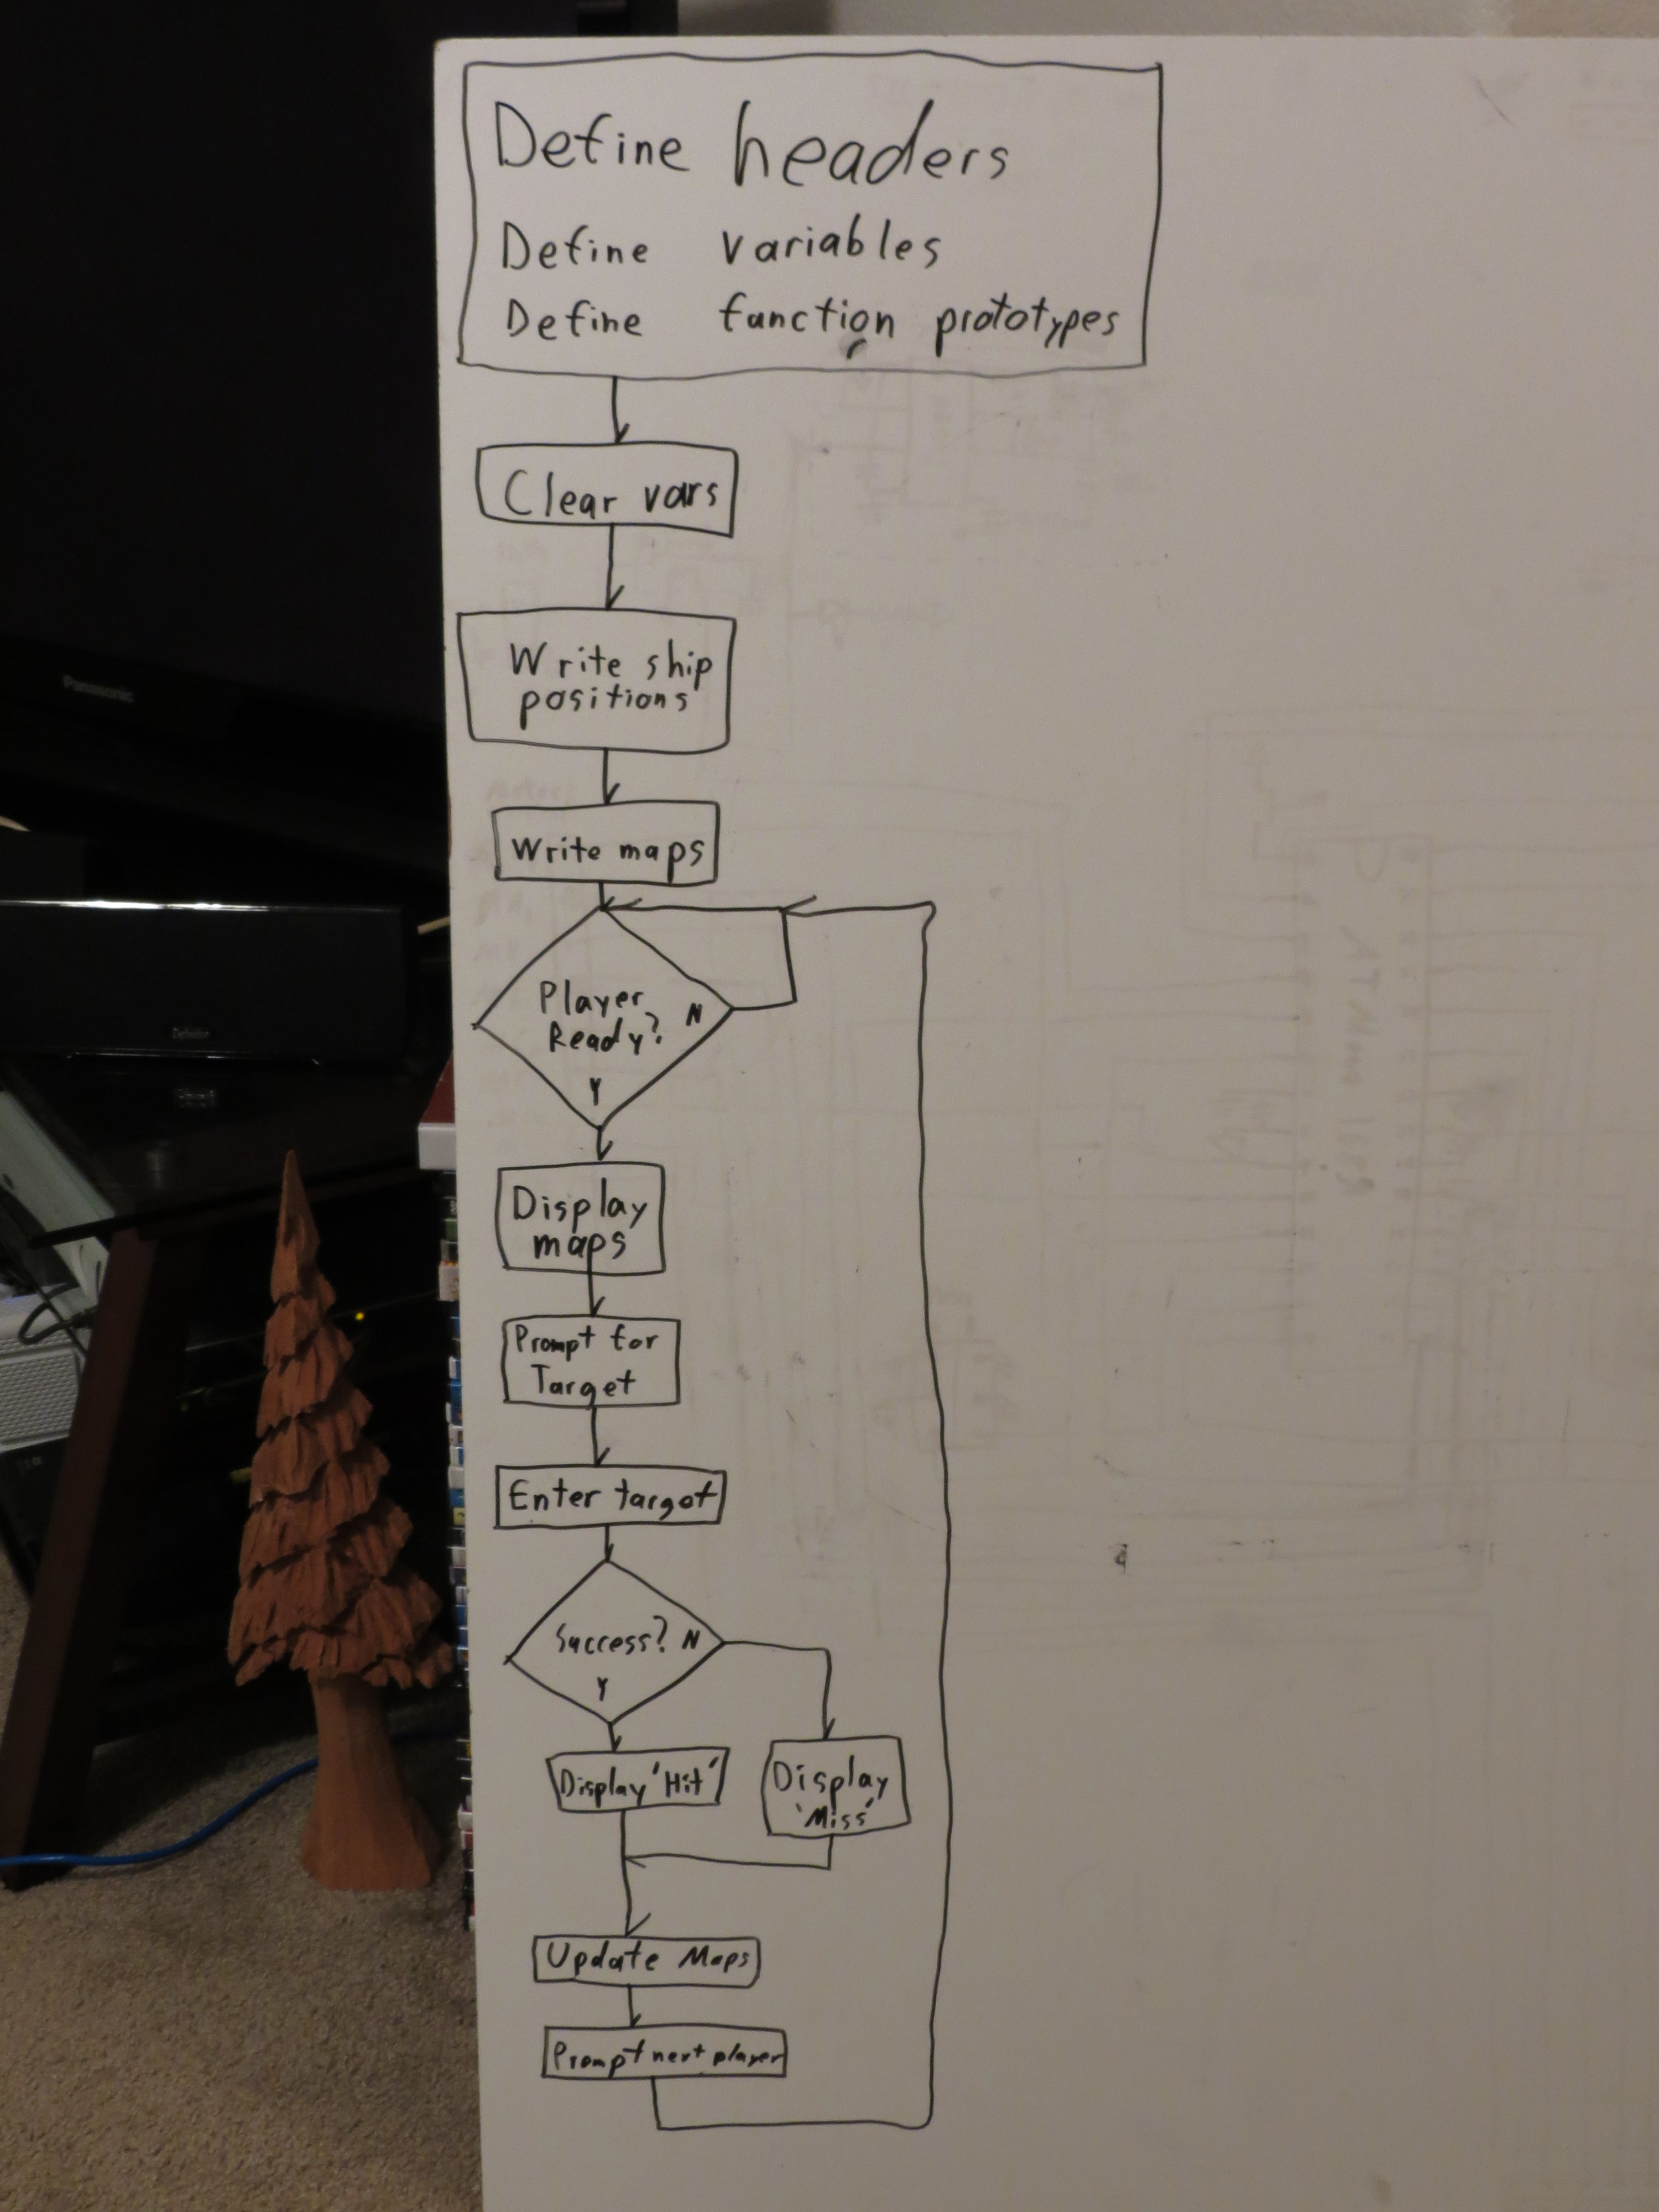 Define headers
Define variables
Define function prototypes
Clear vars
Write ship
positions
Write maps
Player
Ready? N
Y
Display
maps
Prompt for
Target
Enter target
Success? N
Y
Display 'Hit'
Display
'Miss'
Update Maps
Prompt next player
Panasonic